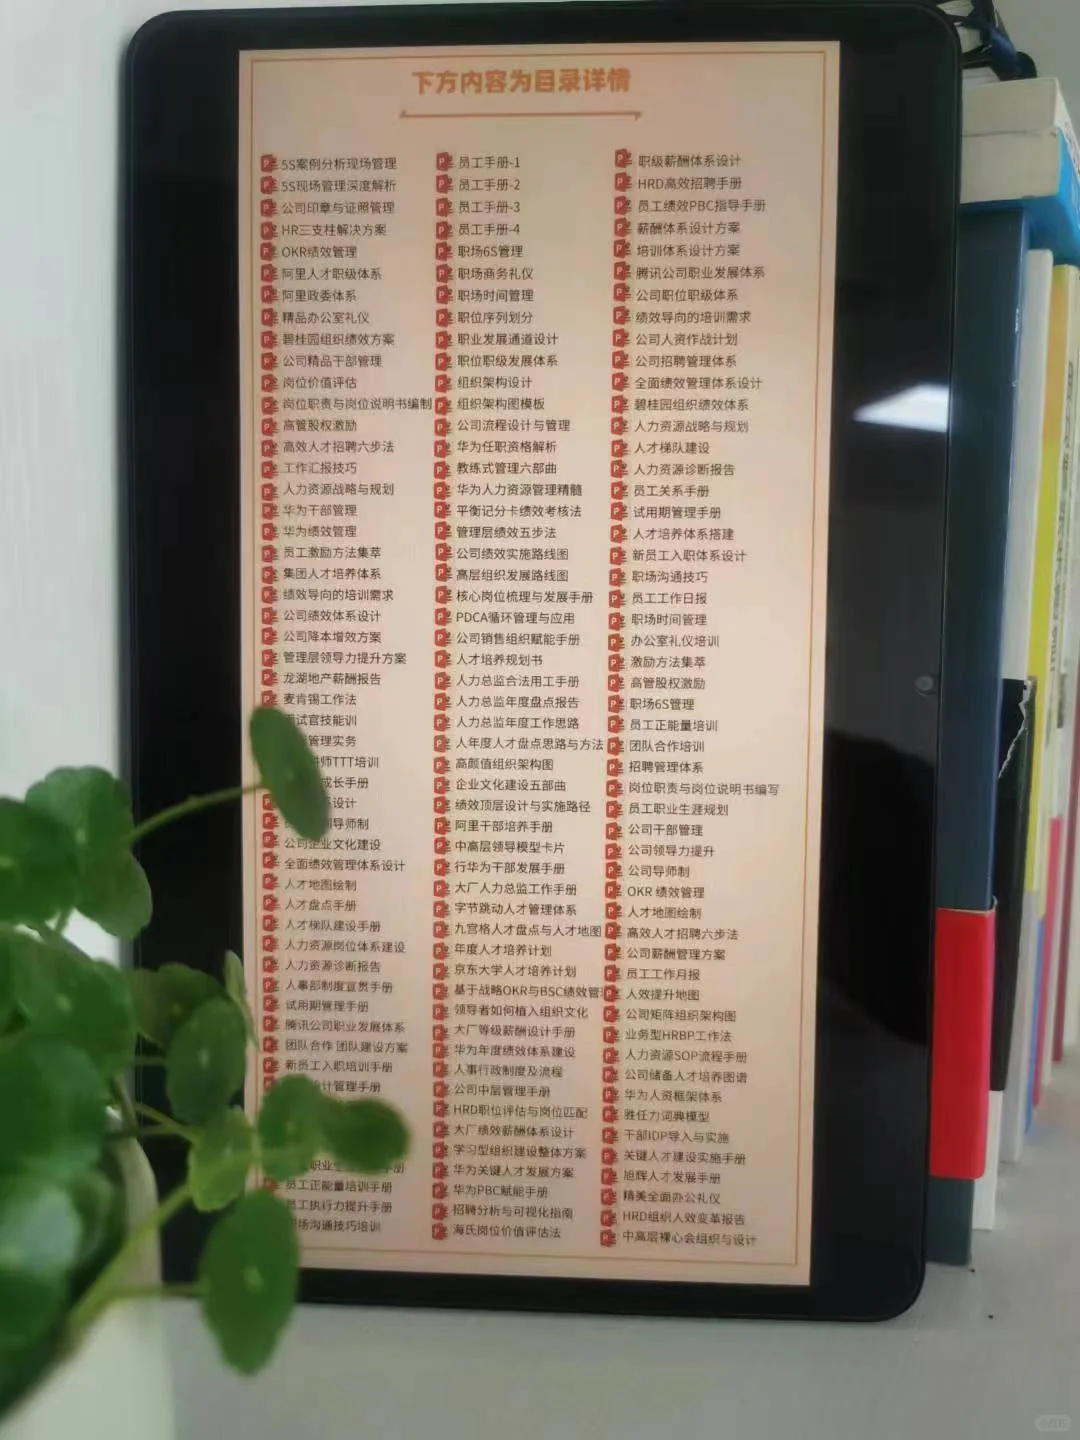 下方内容为目录详情
5S案例分析现场管理
5S现场管理深度解析
公司印章与证照管理
HR三支柱解决方案
OKR绩效管理
阿里人才职级体系
阿里政委体系
精品办公室礼仪
碧桂园组织绩效方案
公司精品干部管理
岗位价值评估
岗位职责与岗位说明书编制
高管股权激励
高效人才招聘六步法
工作汇报技巧
人力资源战略与规划
华为干部管理
华为绩效管理
员工激励方法集萃
集团人才培养体系
绩效导向的培训需求
公司绩效体系设计
公司降本增效方案
管理层领导力提升方案
龙湖地产薪酬报告
麦肯锡工作法
试官技能训
管理实务
师TTT培训
成长手册
设计
导师制
公司企业文化建设
全面绩效管理体系设计
人才地图绘制
人才盘点手册
人才梯队建设手册
人力资源岗位体系建设
人力资源诊断报告
人事部制度宣贯手册
试用期管理手册
腾讯公司职业发展体系
团队合作 团队建设方案
新员工入职培训手册
计管理手册
职业生
手册
员工正能量培训手册
员工执行力提升手册
场沟通技巧培训
员工手册-1
员工手册-2
员工手册-3
员工手册-4
职场6S管理
职场商务礼仪
职场时间管理
职位序列划分
职业发展通道设计
职位职级发展体系
组织架构设计
组织架构图模板
公司流程设计与管理
华为任职资格解析
教练式管理六部曲
华为人力资源管理精髓
平衡记分卡绩效考核法
管理层绩效五步法
公司绩效实施路线图
高层组织发展路线图
核心岗位梳理与发展手册
PDCA循环管理与应用
公司销售组织赋能手册
人才培养规划书
人力总监合法用工手册
人力总监年度盘点报告
人力总监年度工作思路
人年度人才盘点思路与方法
高颜值组织架构图
企业文化建设五部曲
绩效顶层设计与实施路径
阿里干部培养手册
中高层领导模型卡片
行华为干部发展手册
大厂人力总监工作手册
字节跳动人才管理体系
九宫格人才盘点与人才地图
年度人才培养计划
京东大学人才培养计划
基于战略OKR与BSC绩效管
领导者如何植入组织文化
大厂等级薪酬设计手册
华为年度绩效体系建设
人事行政制度及流程
公司中层管理手册
HRD职位评估与岗位匹配
大厂绩效薪酬体系设计
学习型组织建设整体方案
华为关键人才发展方案
华为PBC赋能手册
招聘分析与可视化指南
海氏岗位价值评估法
职级薪酬体系设计
HRD高效招聘手册
员工绩效PBC指导手册
薪酬体系设计方案
培训体系设计方案
腾讯公司职业发展体系
公司职位职级体系
绩效导向的培训需求
公司人资作战计划
公司招聘管理体系
全面绩效管理体系设计
碧桂园组织绩效体系
人力资源战略与规划
人才梯队建设
人力资源诊断报告
员工关系手册
试用期管理手册
人才培养体系搭建
新员工入职体系设计
职场沟通技巧
员工工作日报
职场时间管理
办公室礼仪培训
激励方法集萃
高管股权激励
职场6S管理
员工正能量培训
团队合作培训
招聘管理体系
岗位职责与岗位说明书编写
员工职业生涯规划
公司干部管理
公司领导力提升
公司导师制
OKR 绩效管理
人才地图绘制
高效人才招聘六步法
公司薪酬管理方案
员工工作月报
人效提升地图
公司矩阵组织架构图
业务型HRBP工作法
人力资源SOP流程手册
公司储备人才培养图谱
华为人资框架体系
胜任力词典模型
干部IDP导入与实施
关键人才建设实施手册
旭辉人才发展手册
精美全面办公礼仪
HRD组织人效变革报告
中高层裸心会组织与设计